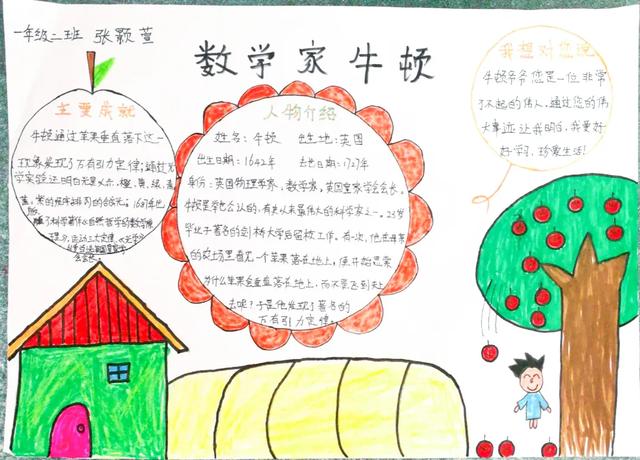 一年级二班 张颢萱
数学家牛顿
主要成就
牛顿通过苹果垂直落下这一
现象发现了万有引力定律；通过光
学实验证明白光是从赤、橙、黄、绿、
紫的顺序排列的合成光。1687年出版
了科学著作《自然哲学的数学原
人物介绍
姓名：牛顿 出生地：英国
出生日期：1642年 去世日期：1727年
身份：英国物理学家，数学家，英国皇家学会会长。
牛顿是学也公认的，有史以来最伟大的科学家之一。23岁
毕业于著名的剑桥大学后留校工作。有一次，他在母亲
的农场里看见一个苹果落在地上，便开始思索
为什么苹果会垂直落在地上，而不是飞到天上
去呢？于是他发现了著名的
万有引力定律。
我想对您说
牛顿爷爷您是一位非常
了不起的伟人，通过您的伟
大事迹让我明白，我要好
好学习，珍爱生活！